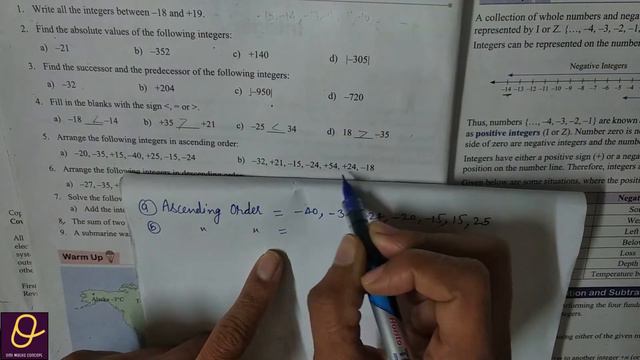 1. Write all the integers between –18 and +19.
2. Find the absolute values of the following integers:
a) –21 b) –352 c) +140 d) |–305|
3. Find the successor and the predecessor of the following integers:
a) –32 b) +204 c) |–950| d) –720
4. Fill in the blanks with the sign <, = or >.
a) –18 < –14 b) +35 > +21 c) –25 < 34 d) 18 > –35
5. Arrange the following integers in ascending order:
a) –20, –35, +15, –40, +25, –15, –24 b) –32, +21, –15, –24, +54, +24, –18
6. Arrange the following integers in descending order
a) –27, –35,
7. Solve the follow
a) Add the inte
8. The sum of two
9. A submarine wa
(a) Ascending Order = –40, –3 –20, –15, 15, 25
(b) " " =
Warm Up
Alaska –3°C
A collection of whole numbers and nega
represented by I or Z. {…, –4, –3, –2, –1,
Integers can be represented on the number
Negative Integers
–14 –13 –12 –11 –10 –9 –8 –7 –6 –5
Thus, numbers {…, –4, –3, –2, –1} are known
as positive integers (I or Z). Number zero is n
side of zero are negative integers and the num
Integers have either a positive sign (+) or a nega
position on the number line. Therefore, integers a
Given below are some situations, where the pos
Negat
Sou
Wes
Left
Belo
Loss
Depth
Temperature b
tion and Subtra
rforming the four fundam
ding either of the given
to another integer
OM MATHS CONCEPT